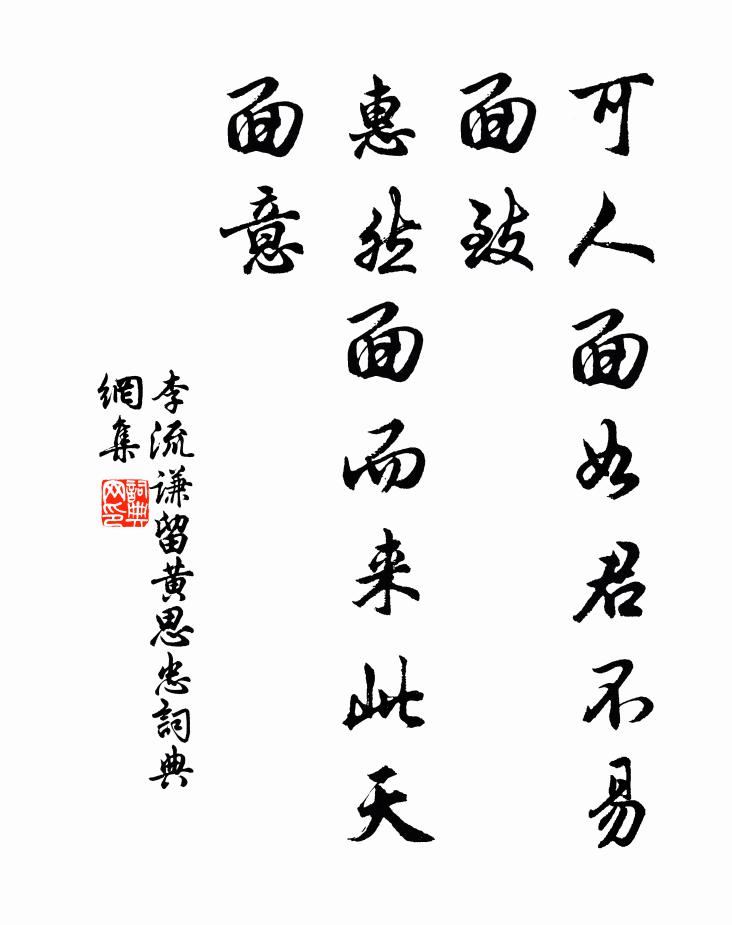 可人面如君不易
面致
惠然面而来此天
面意
李流谦留黄思忠詞典
網集
詞典
网印